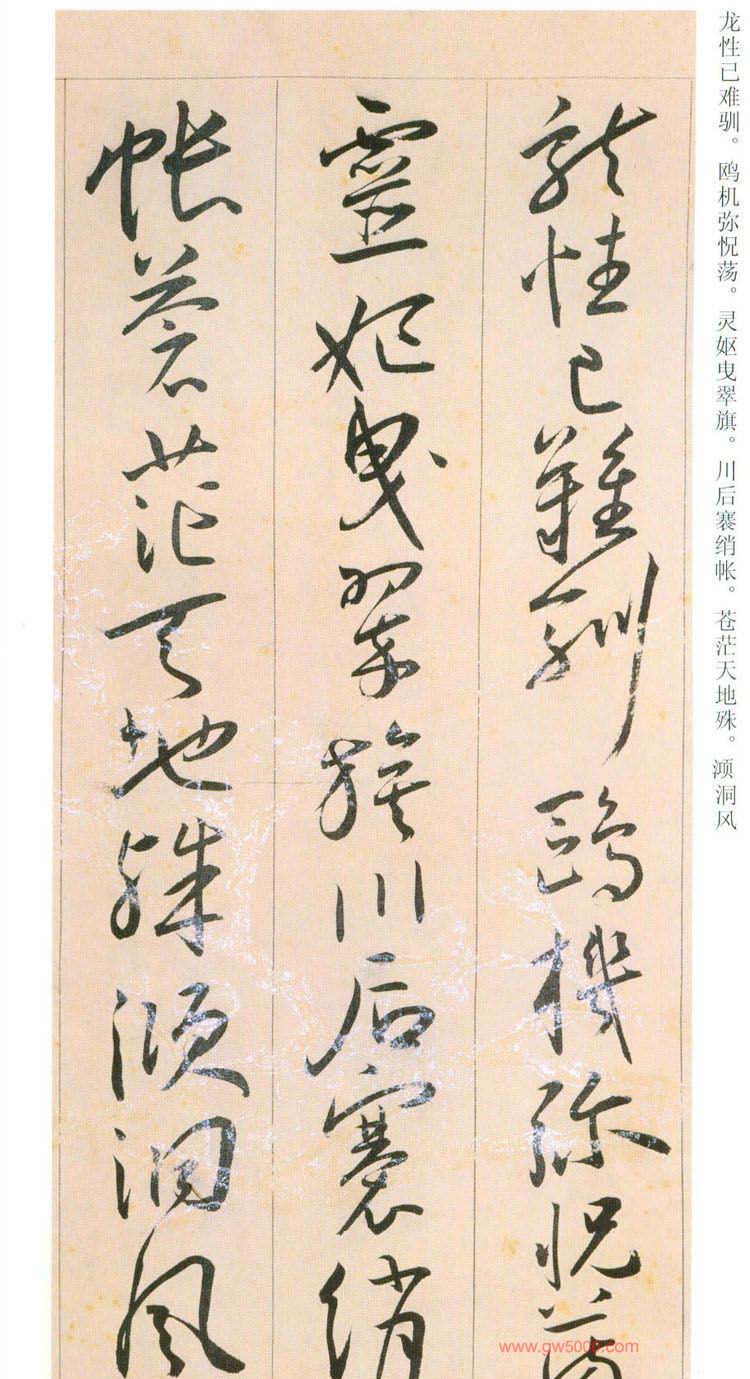 龙性已难驯。鸥机弥怳荡。灵妪曳翠旗。川后褰绡帐。苍茫天地殊。澒洞风
龍性已難馴鷗機弥怳蕩
靈妪曳翠旗川后褰綃
帐蒼茫天地殊澒洞風
www.gw500.com